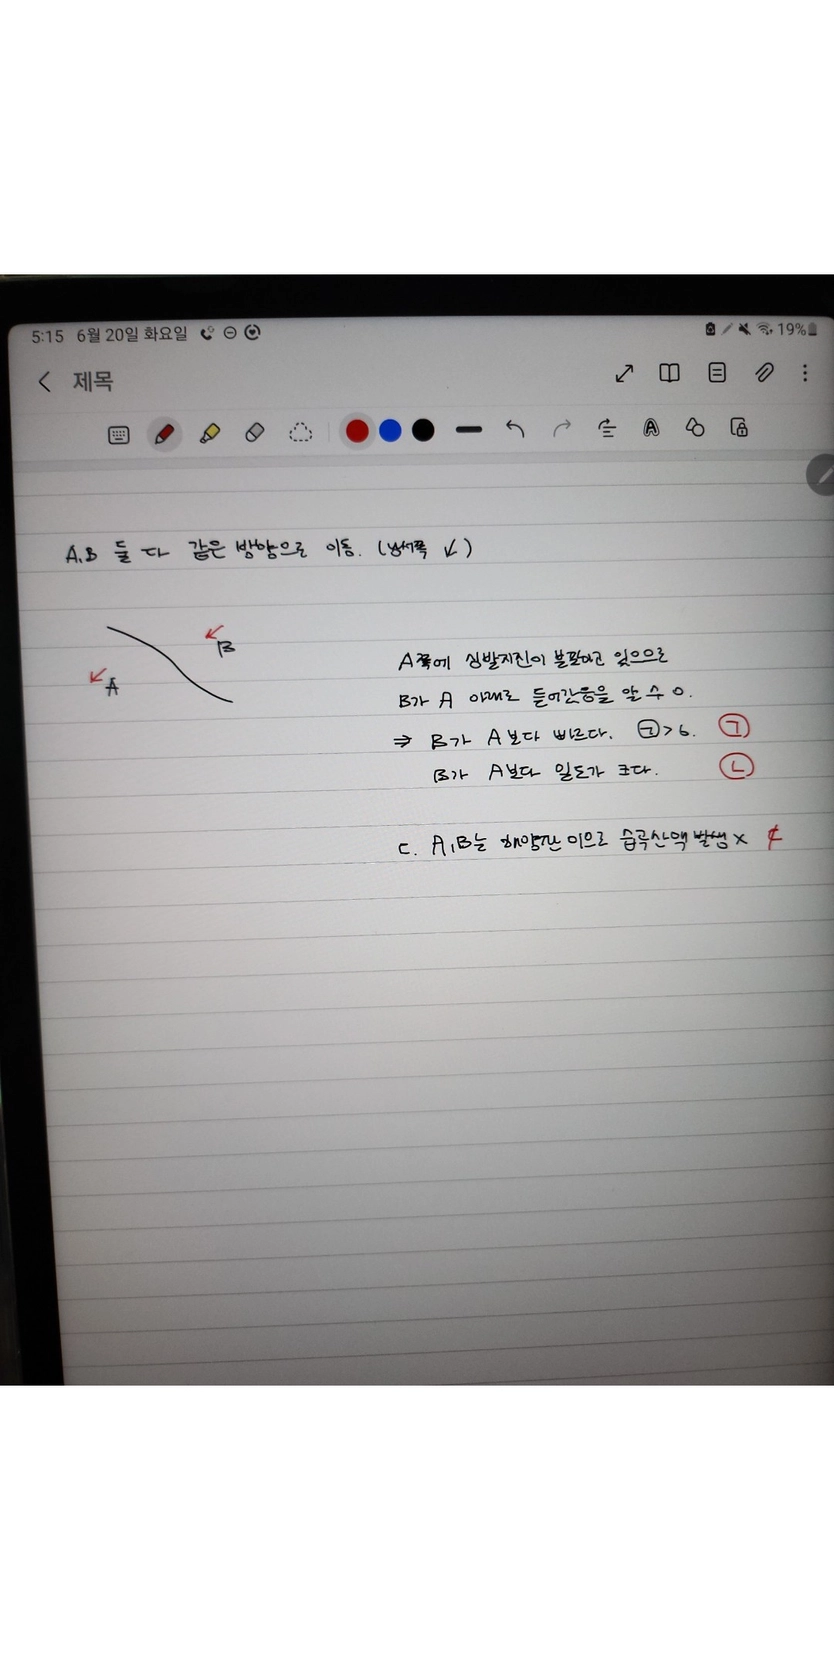 5:15 6월 20일 화요일
19%
제목
A,B 둘 다 같은 방향으로 이동. (남서쪽 ↙)
B
A
A쪽에 심발지진이 분포하고 있으므로
B가 A 아래로 들어갔음을 알 수 o.
⇒ B가 A보다 빠르다. ㉠>6. ㄱ
B가 A보다 밀도가 크다. ㄴ
ㄷ. A,B는 해양판 이므로 습곡산맥 발생 x ㄷ